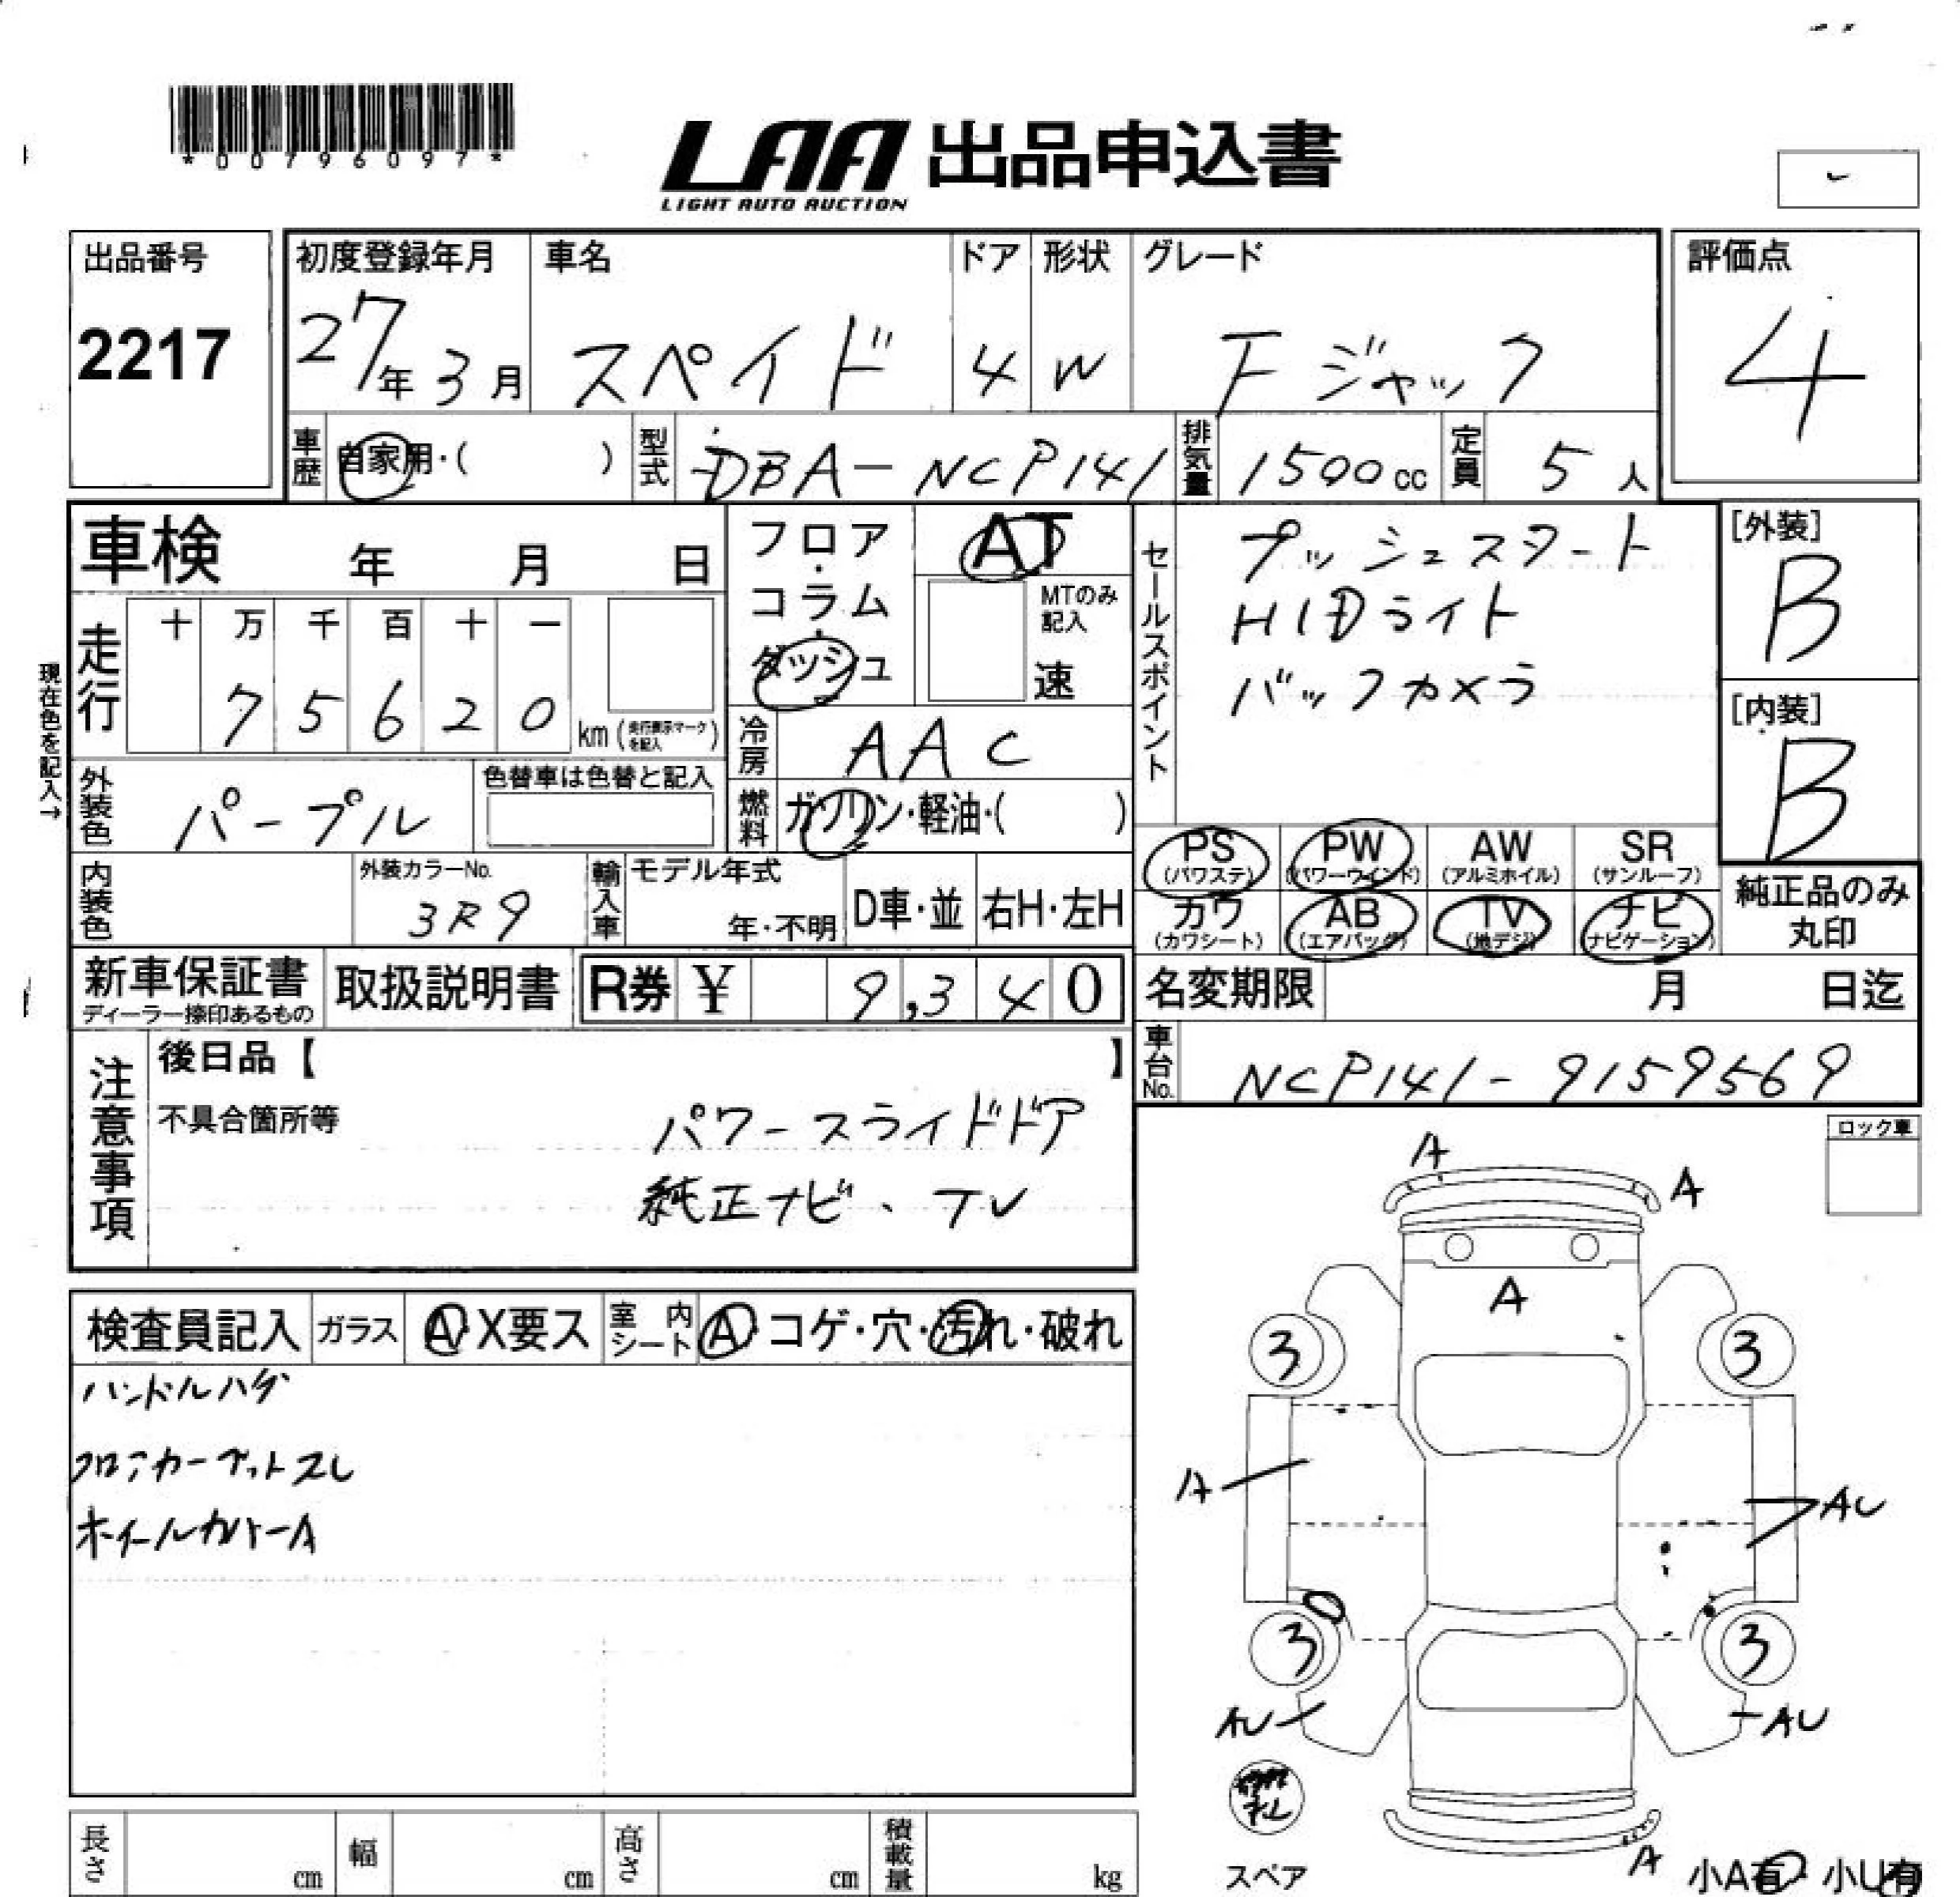 *00796097*
LAA 出品申込書
LIGHT AUTO AUCTION
出品番号 初度登録年月 車名 ドア 形状 グレード 評価点
2217 27年 3月 スペイド 4 W F ジャック 4
車歴 自家用・( ) 型式 DBA-NCP141 排気量 1500cc 定員 5人
車検 年 月 日
フロア・コラム・ダッシュ
AT
MTのみ記入
速
セールスポイント
プッシュスタート
HIDライト
バックカメラ
[外装]
B
[内装]
B
現在色を記入→
走行 十 万 千 百 十 一
7 5 6 2 0 km(走行表示マークを記入)
冷房 AAC
外装色 パープル 色替車は色替と記入
燃料 ガソリン・軽油・( )
PS(パワステ) PW(パワーウインド) AW(アルミホイル) SR(サンルーフ)
カワ(カワシート) AB(エアバッグ) TV(地デジ) ナビ(ナビゲーション)
純正品のみ丸印
内装色 外装カラーNo. 3R9 輸入車 モデル年式 年・不明 D車・並 右H・左H
新車保証書 ディーラー捺印あるもの 取扱説明書 R券 ¥ 9,340
名変期限 月 日迄
車台No. NCP141-9159569
注意事項
後日品【 】
不具合箇所等
パワースライドドア
純正ナビ、TV
ロック車
検査員記入 ガラス A・X要ス 室内シート A・コゲ・穴・汚れ・破れ
ハンドルハゲ
フロアカーペットスレ
ホイールカバーA
A
A
A
3 3
A AU
3 3
AU AU
A
スペア
小A有・小U有
長さ cm 幅 cm 高さ cm 積載量 kg